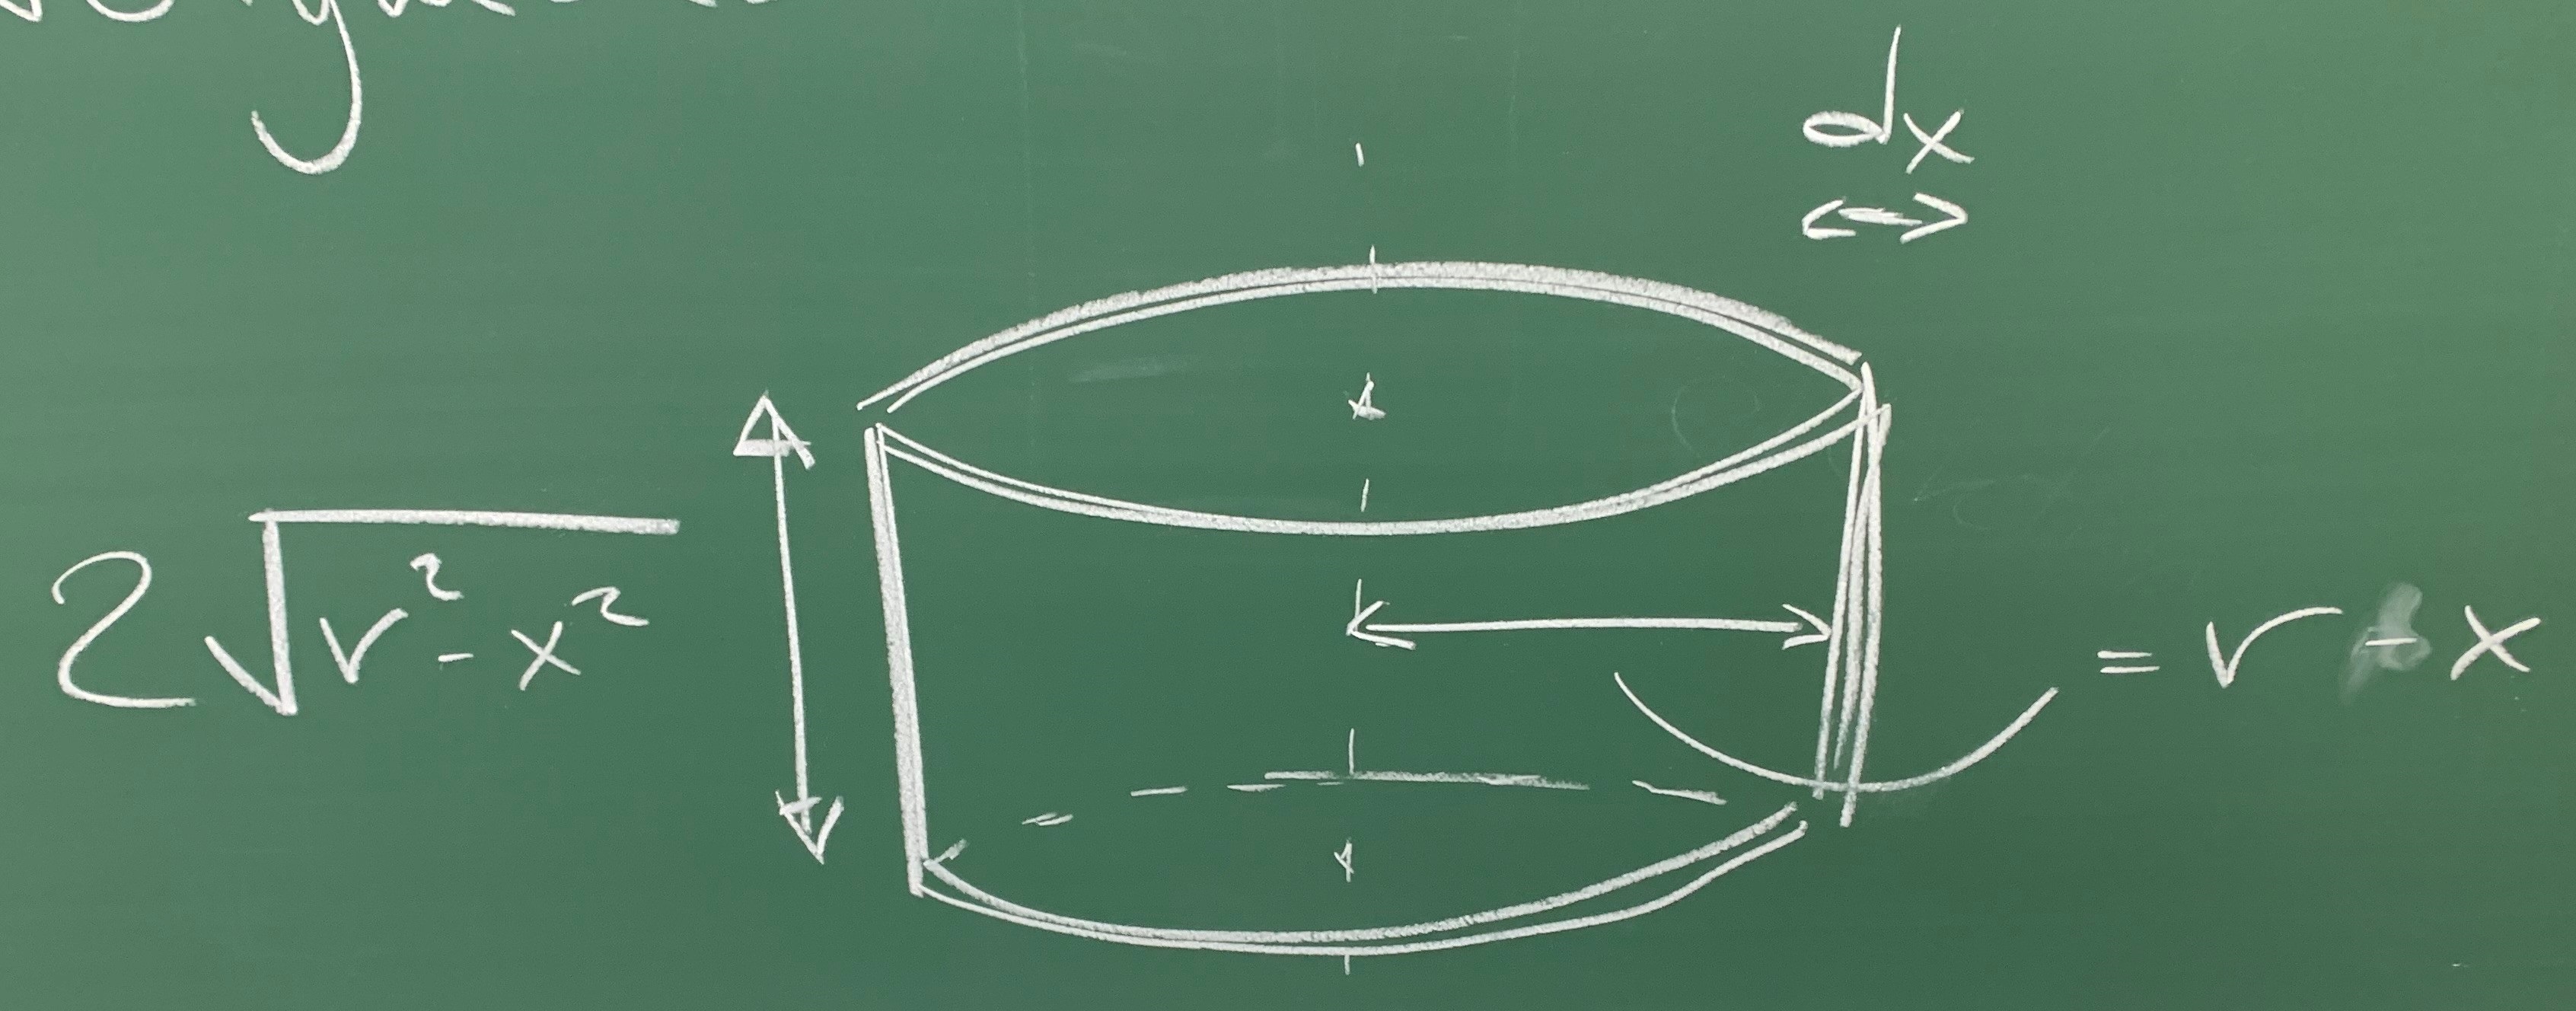 dx
2√r² - x²
= r - x